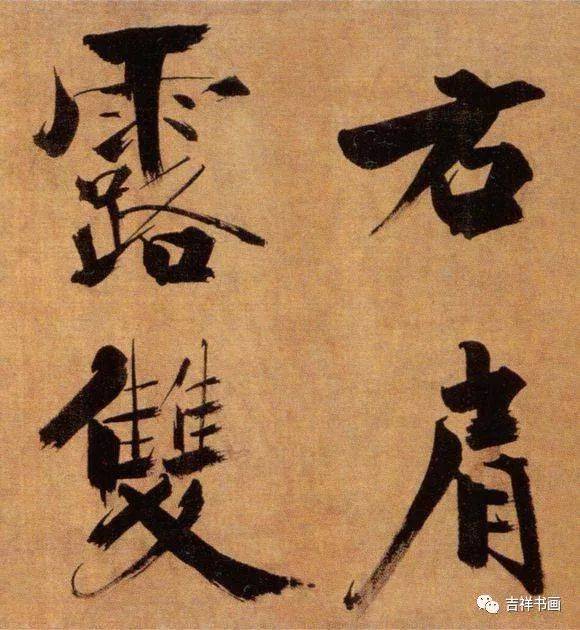 右肩
露雙
吉祥书画